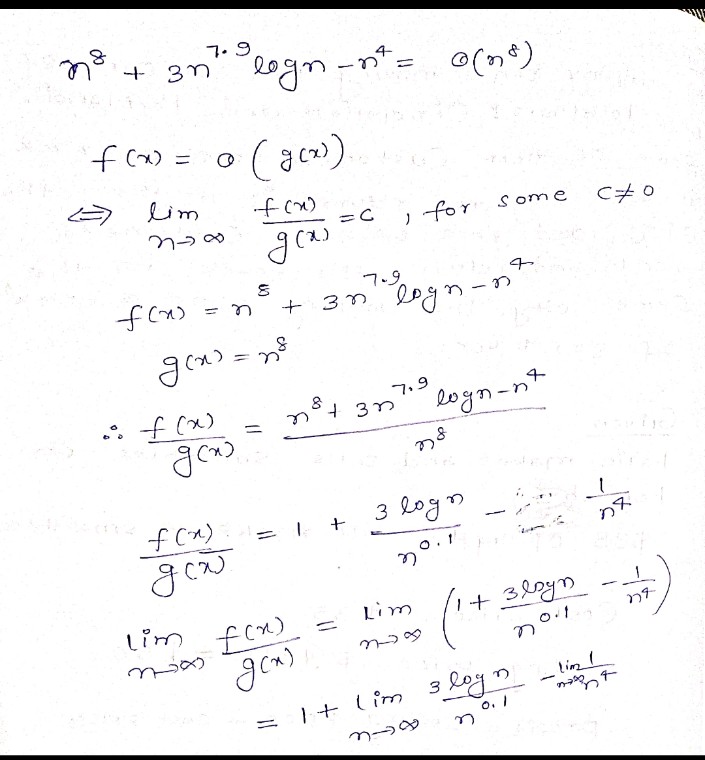 n^8 + 3n^7.9 logn - n^4 = O(n^8)
f(n) = O(g(n))
<=> lim n→∞ f(n)/g(n) = c, for some c≠0
f(n) = n^8 + 3n^7.9 logn - n^4
g(n) = n^8
∴ f(n)/g(n) = (n^8 + 3n^7.9 logn - n^4)/n^8
f(n)/g(n) = 1 + 3 logn/n^0.1 - 1/n^4
Lim n→∞ f(n)/g(n) = Lim n→∞ (1 + 3logn/n^0.1 - 1/n^4)
= 1 + Lim n→∞ 3 logn/n^0.1 - lim n→∞ 1/n^4